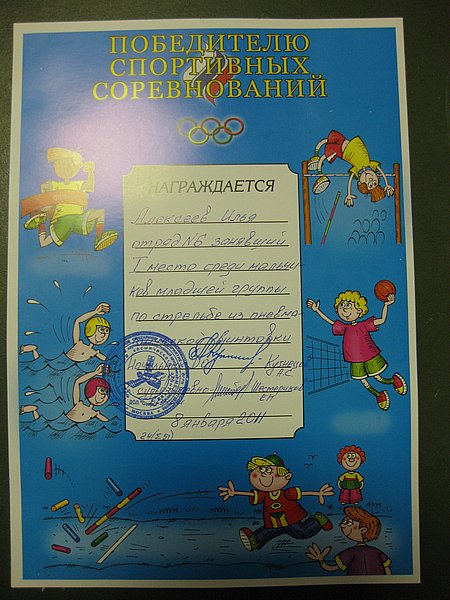 ПОБЕДИТЕЛЮ
СПОРТИВНЫХ
СОРЕВНОВАНИЙ
НАГРАЖДАЕТСЯ
Алексеев Илья
отряд №6 занявший
I место среди мальчи-
ков младшей группы
по стрельбе из пневма-
винтовки
Кузнецов
А.С
Шестериков
ЕН
8 января 2011